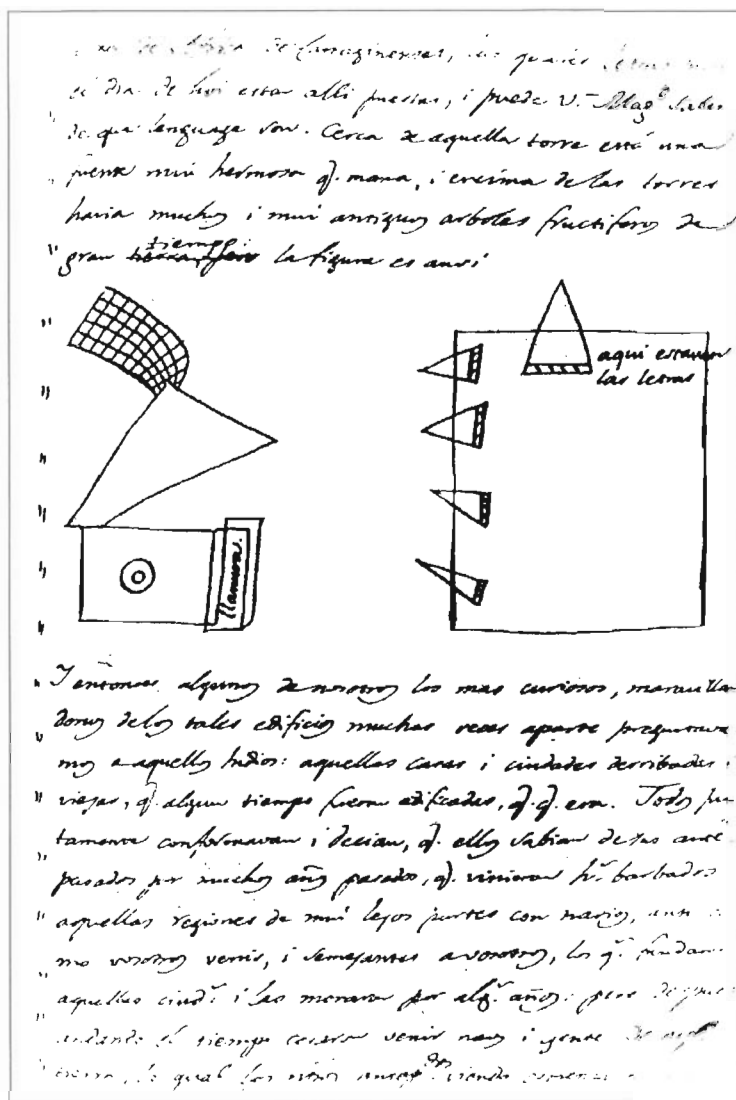 de Cartaginenses, las quales letras
el dia de hoi estan alli puestas, i puede V. Mag.d saber
" de que lenguage son. Cerca de aquella torre está una
" fuente mui hermosa q. mana, i encima de las torres
havia muchos i mui antiguos arboles fructiferos de
" gran tiempo: la figura es ansi
aqui estavan
las letras
llanura.
" I entonces algunos de nosotros los mas curiosos, maravilla
donos delos tales edificios muchas veces aparte preguntava
" mos a aquellos Indios: aquellas casas i ciudades derribadas i
" viejas, q. algun tiempo fueron edificadas, q. q. era. Todos jun
tamente conformavan i decian, q. ellos sabian de sus ante
pasados por muchos años pasados, q. vinieron h.s barbados
" aquellas regiones de mui lejos partes con navios, ansi co
mo vosotros venis, i semejantes a vosotros, los q. fundaron
aquellas ciud.s i las moraron por alg.s años: pero despues
andando el tiempo cesaron venir naos i gente de
tierra, lo qual los ntros antep.dos viendo